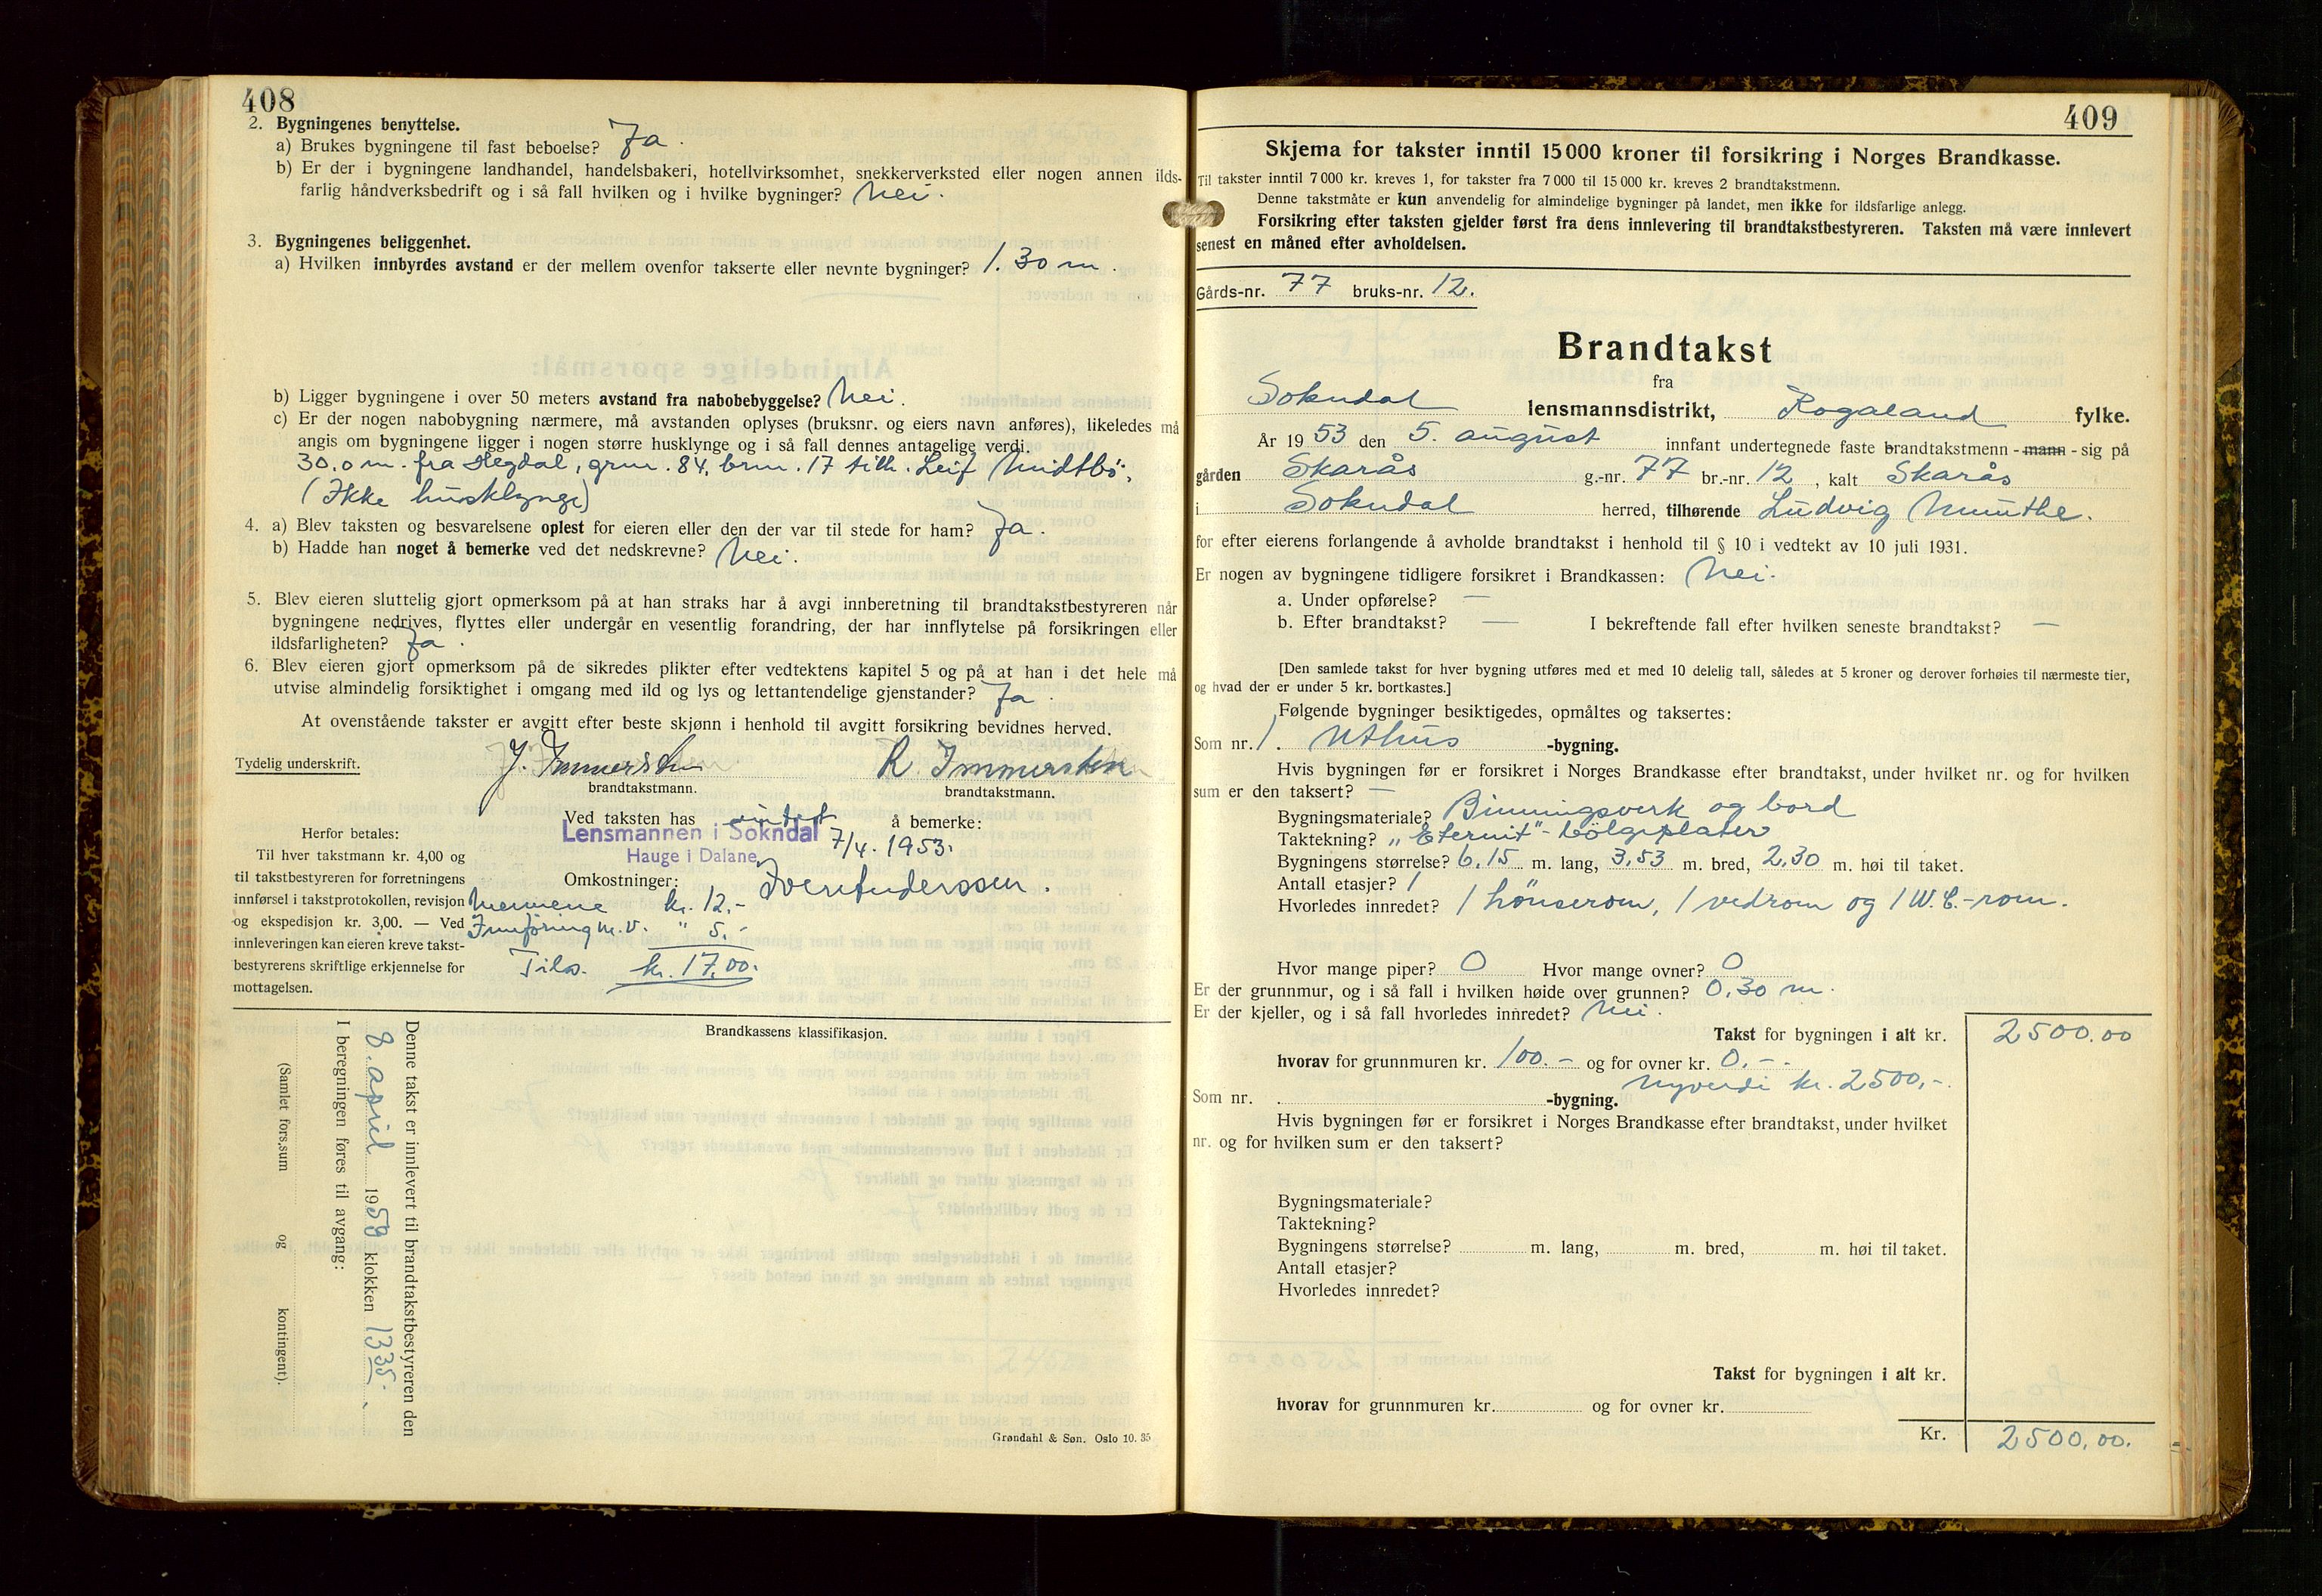 408
2. Bygningenes benyttelse.
a) Brukes bygningene til fast beboelse? Ja.
b) Er der i bygningene landhandel, handelsbakeri, hotellvirksomhet, snekkerverksted eller nogen annen ilds-
farlig håndverksbedrift og i så fall hvilken og i hvilke bygninger? Nei.
3. Bygningenes beliggenhet.
a) Hvilken innbyrdes avstand er der mellem ovenfor takserte eller nevnte bygninger? 1.30 m.
b) Ligger bygningene i over 50 meters avstand fra nabobebyggelse? Nei.
c) Er der nogen nabobygning nærmere, må avstanden oplyses (bruksnr. og eiers navn anføres), likeledes må
angis om bygningene ligger i nogen større husklynge og i så fall dennes antagelige verdi.
30.0 m. fra Hegdal, grnr. 84, brnr. 17 tilh. Leif Midtbö.
(Ikke husklynge)
4. a) Blev taksten og besvarelsene oplest for eieren eller den der var til stede for ham? Ja.
b) Hadde han noget å bemerke ved det nedskrevne? Nei.
5. Blev eieren sluttelig gjort opmerksom på at han straks har å avgi innberetning til brandtakstbestyreren når
bygningene nedrives, flyttes eller undergår en vesentlig forandring, der har innflytelse på forsikringen eller
ildsfarligheten? Ja.
6. Blev eieren gjort opmerksom på de sikredes plikter efter vedtektens kapitel 5 og på at han i det hele må
utvise almindelig forsiktighet i omgang med ild og lys og lettantendelige gjenstander? Ja.
At ovenstående takster er avgitt efter beste skjønn i henhold til avgitt forsikring bevidnes herved.
Tydelig underskrift. J. Immerstein R. Immerstein
brandtakstmann. brandtakstmann.
Ved taksten has intet å bemerke:
Lensmannen i Sokndal 7/4. 1953.
Hauge i Dalane
Omkostninger:
Mennene kr. 12.-
Innføring m.v. " 5.-
Tils. kr. 17.00.
Herfor betales:
Til hver takstmann kr. 4,00 og
til takstbestyreren for forretningens
innførsel i takstprotokollen, revisjon
og ekspedisjon kr. 3,00. — Ved
innleveringen kan eieren kreve takst-
bestyrerens skriftlige erkjennelse for
mottagelsen.
Brandkassens klassifikasjon.
Denne takst er innlevert til brandtakstbestyreren den
8. april 1953 klokken 13 35.
I beregningen føres til avgang:
(Samlet fors.sum og kontingent).
Grøndahl & Søn. Oslo 10. 35
409
Skjema for takster inntil 15 000 kroner til forsikring i Norges Brandkasse.
Til takster inntil 7 000 kr. kreves 1, for takster fra 7 000 til 15 000 kr. kreves 2 brandtakstmenn.
Denne takstmåte er kun anvendelig for almindelige bygninger på landet, men ikke for ildsfarlige anlegg.
Forsikring efter taksten gjelder først fra dens innlevering til brandtakstbestyreren. Taksten må være innlevert
senest en måned efter avholdelsen.
Gårds-nr. 77 bruks-nr. 12.
Brandtakst
fra
Sokndal lensmannsdistrikt, Rogaland fylke.
År 1953 den 5. august innfant undertegnede faste brandtakstmenn - mann - sig på
gården Skarås g.-nr. 77 br.-nr. 12, kalt Skarås
i Sokndal herred, tilhørende Ludvig Munthe.
for efter eierens forlangende å avholde brandtakst i henhold til § 10 i vedtekt av 10 juli 1931.
Er nogen av bygningene tidligere forsikret i Brandkassen: Nei.
a. Under opførelse? —
b. Efter brandtakst? — I bekreftende fall efter hvilken seneste brandtakst? —
[Den samlede takst for hver bygning utføres med et med 10 delelig tall, således at 5 kroner og derover forhøies til nærmeste tier,
og hvad der er under 5 kr. bortkastes.]
Følgende bygninger besiktigedes, opmåltes og taksertes:
Som nr. 1. Uthus -bygning.
Hvis bygningen før er forsikret i Norges Brandkasse efter brandtakst, under hvilket nr. og for hvilken
sum er den taksert? —
Bygningsmateriale? Binningsverk og bord
Taktekning? „Eternit"-bölgeplater
Bygningens størrelse? 6.15 m. lang, 3.53 m. bred, 2.30 m. høi til taket.
Antall etasjer? 1
Hvorledes innredet? 1 hönserom, 1 vedrom og 1 W.C.-rom.
Hvor mange piper? 0 Hvor mange ovner? 0
Er der grunnmur, og i så fall i hvilken høide over grunnen? 0.30 m.
Er der kjeller, og i så fall hvorledes innredet? Nei.
Takst for bygningen i alt kr. 2500.00
hvorav for grunnmuren kr. 100.- og for ovner kr. 0.-
Nyverdi kr. 2500.-
Som nr. -bygning.
Hvis bygningen før er forsikret i Norges Brandkasse efter brandtakst, under hvilket
nr. og for hvilken sum er den taksert?
Bygningsmateriale?
Taktekning?
Bygningens størrelse? m. lang, m. bred, m. høi til taket.
Antall etasjer?
Hvorledes innredet?
Takst for bygningen i alt kr.
hvorav for grunnmuren kr. og for ovner kr.
Kr. 2500.00.